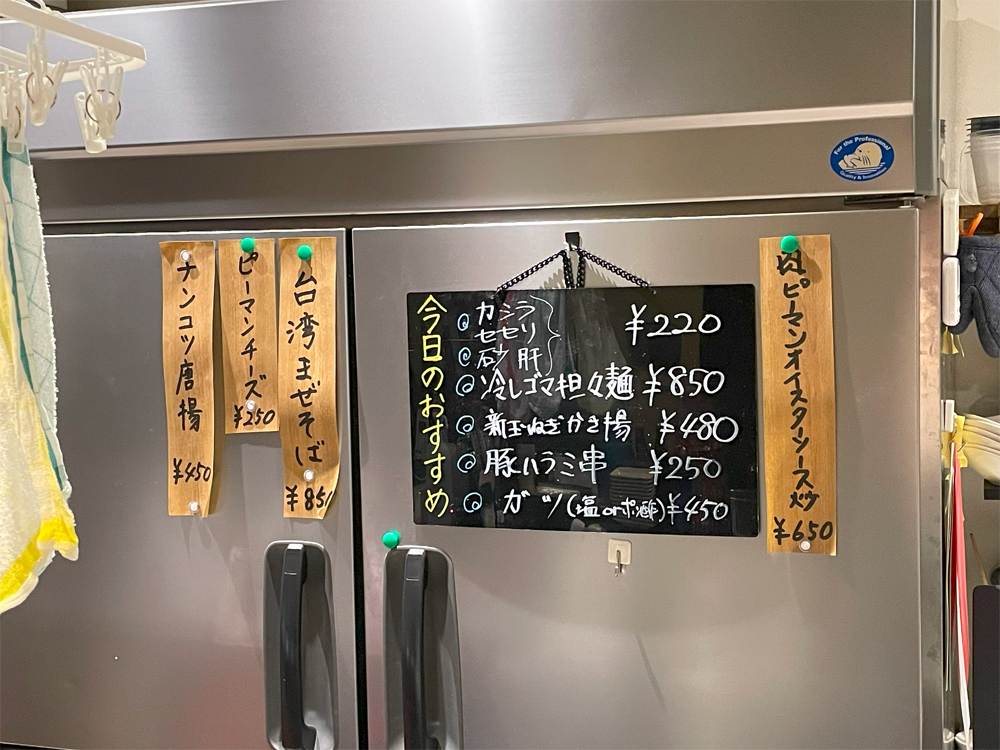 ナンコツ唐揚
¥450
ピーマンチーズ
¥250
台湾まぜそば
¥850
今日のおすすめ
カシラ
セセリ
砂肝
¥220
冷しゴマ担々麺 ¥850
新玉ねぎかき揚 ¥480
豚ハラミ串 ¥250
ガツ(塩orポン酢)¥450
肉ピーマンオイスターソース炒
¥650
For the Professional
Quality & Innovation